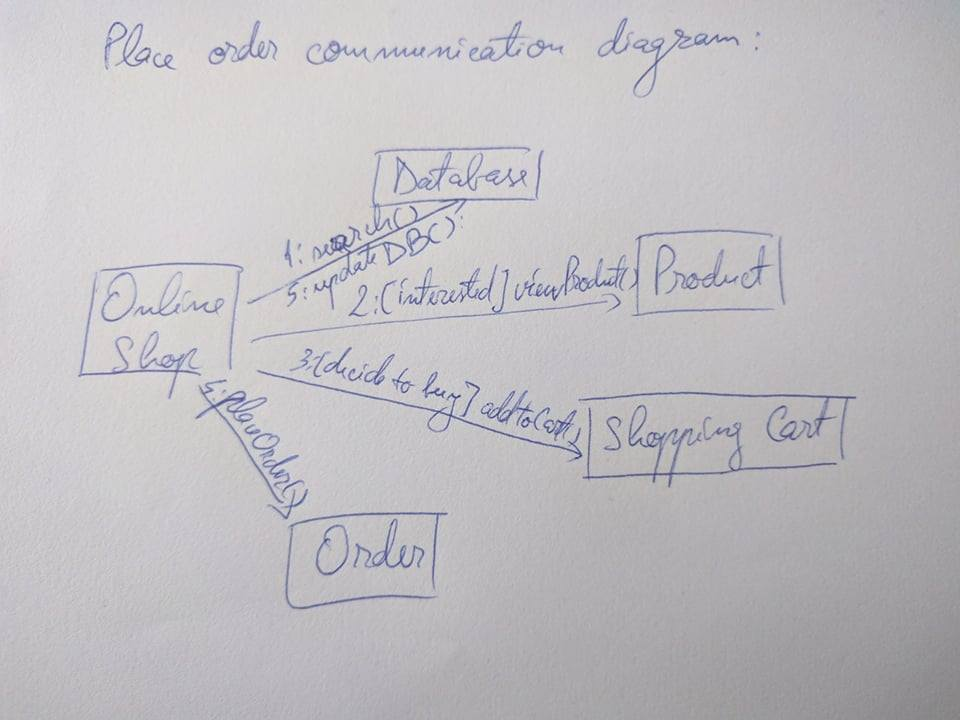 Place order communication diagram:
Database
1: search()
5: updateDB()
Online
Shop
2: [interested] viewProduct()
Product
3: [decide to buy] addtoCart()
Shopping Cart
4: placeOrder()
Order